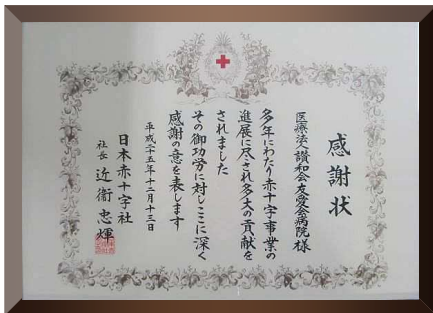 感謝状
医療法人讃和会友愛会病院 様
多年にわたり赤十字事業の
進展に尽され多大の貢献を
されました
その御功労に対しここに深く
感謝の意を表します
平成二十五年十二月十三日
日本赤十字社
社長 近衞忠煇